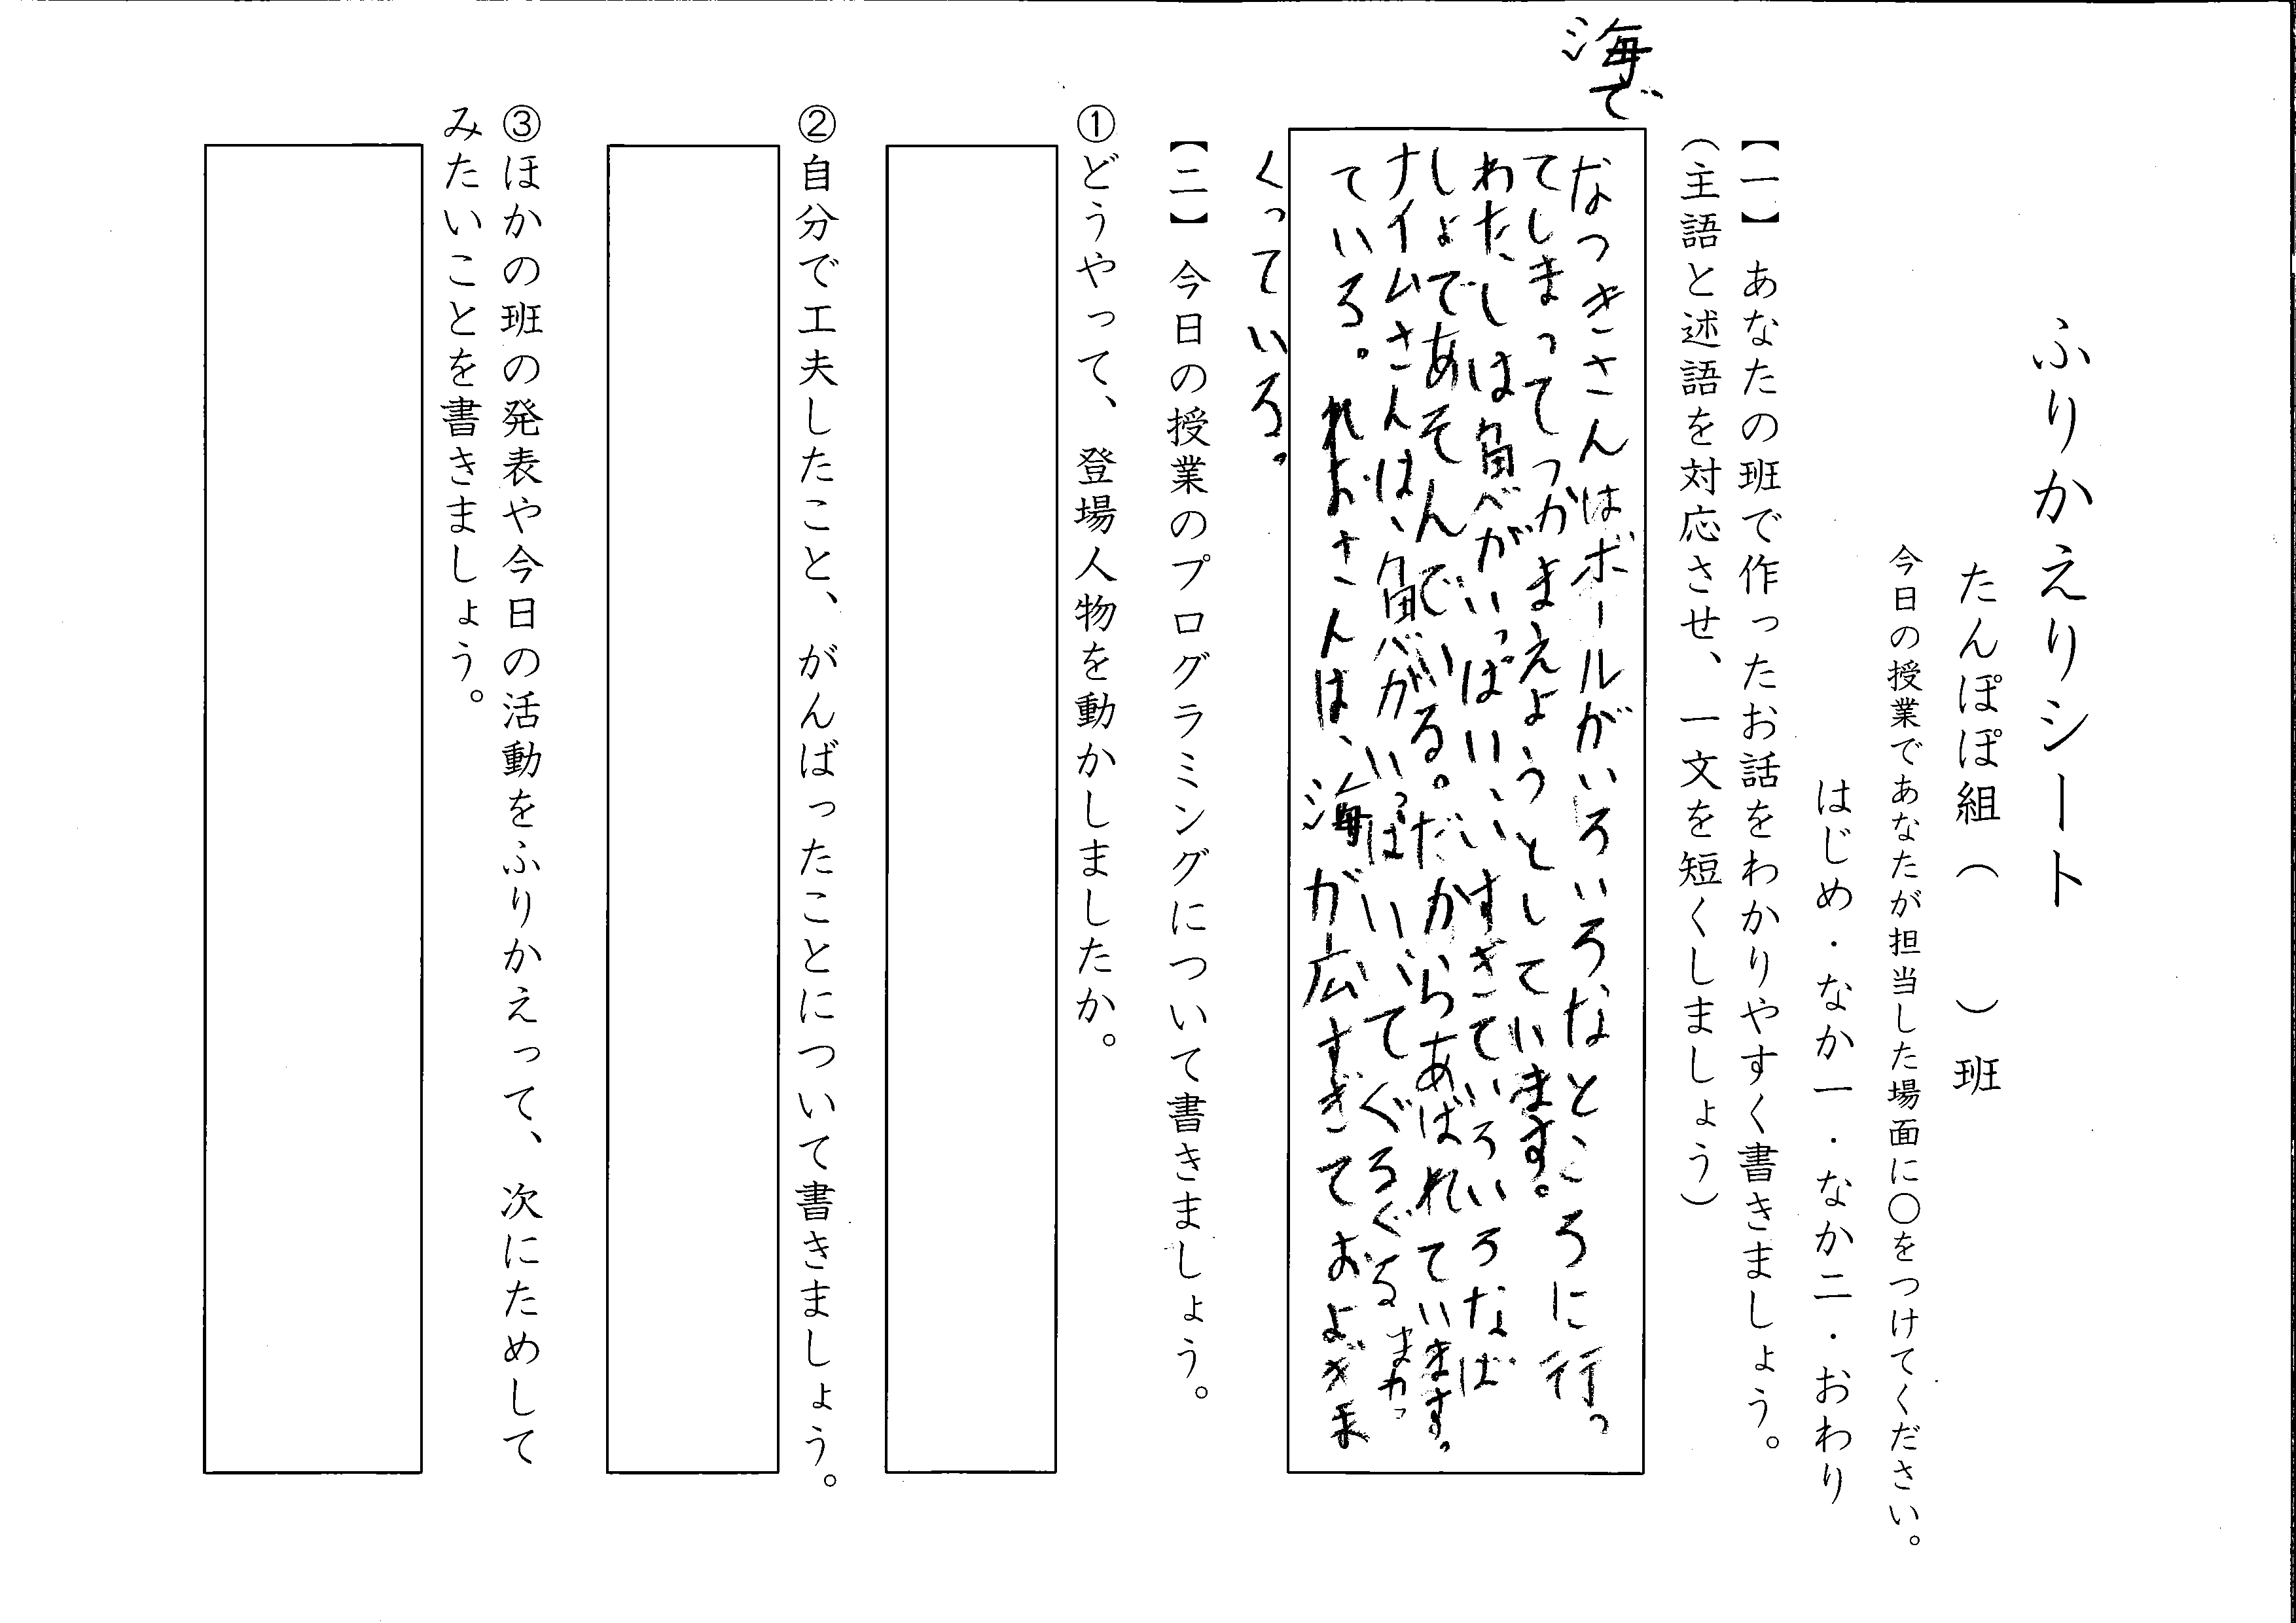 ふりかえりシート
たんぽぽ組（　　）班
今日の授業であなたが担当した場面に○をつけてください。
はじめ・なか一・なか二・おわり
【一】あなたの班で作ったお話をわかりやすく書きましょう。
（主語と述語を対応させ、一文を短くしましょう）
海で
なつきさんはボールがいろいろなところに行っ
てしまってつかまえようとしています。
わたしは魚べがいっぱいいすぎていろいろなば
しょであそんでいる。だからあばれています。
ナイムさんは、魚べがいっぱいいてぐるぐるまわっ
ている。れおさんは、海が広すぎておよぎま
くっている。
【二】今日の授業のプログラミングについて書きましょう。
①どうやって、登場人物を動かしましたか。
②自分で工夫したこと、がんばったことについて書きましょう。
③ほかの班の発表や今日の活動をふりかえって、次にためして
みたいことを書きましょう。